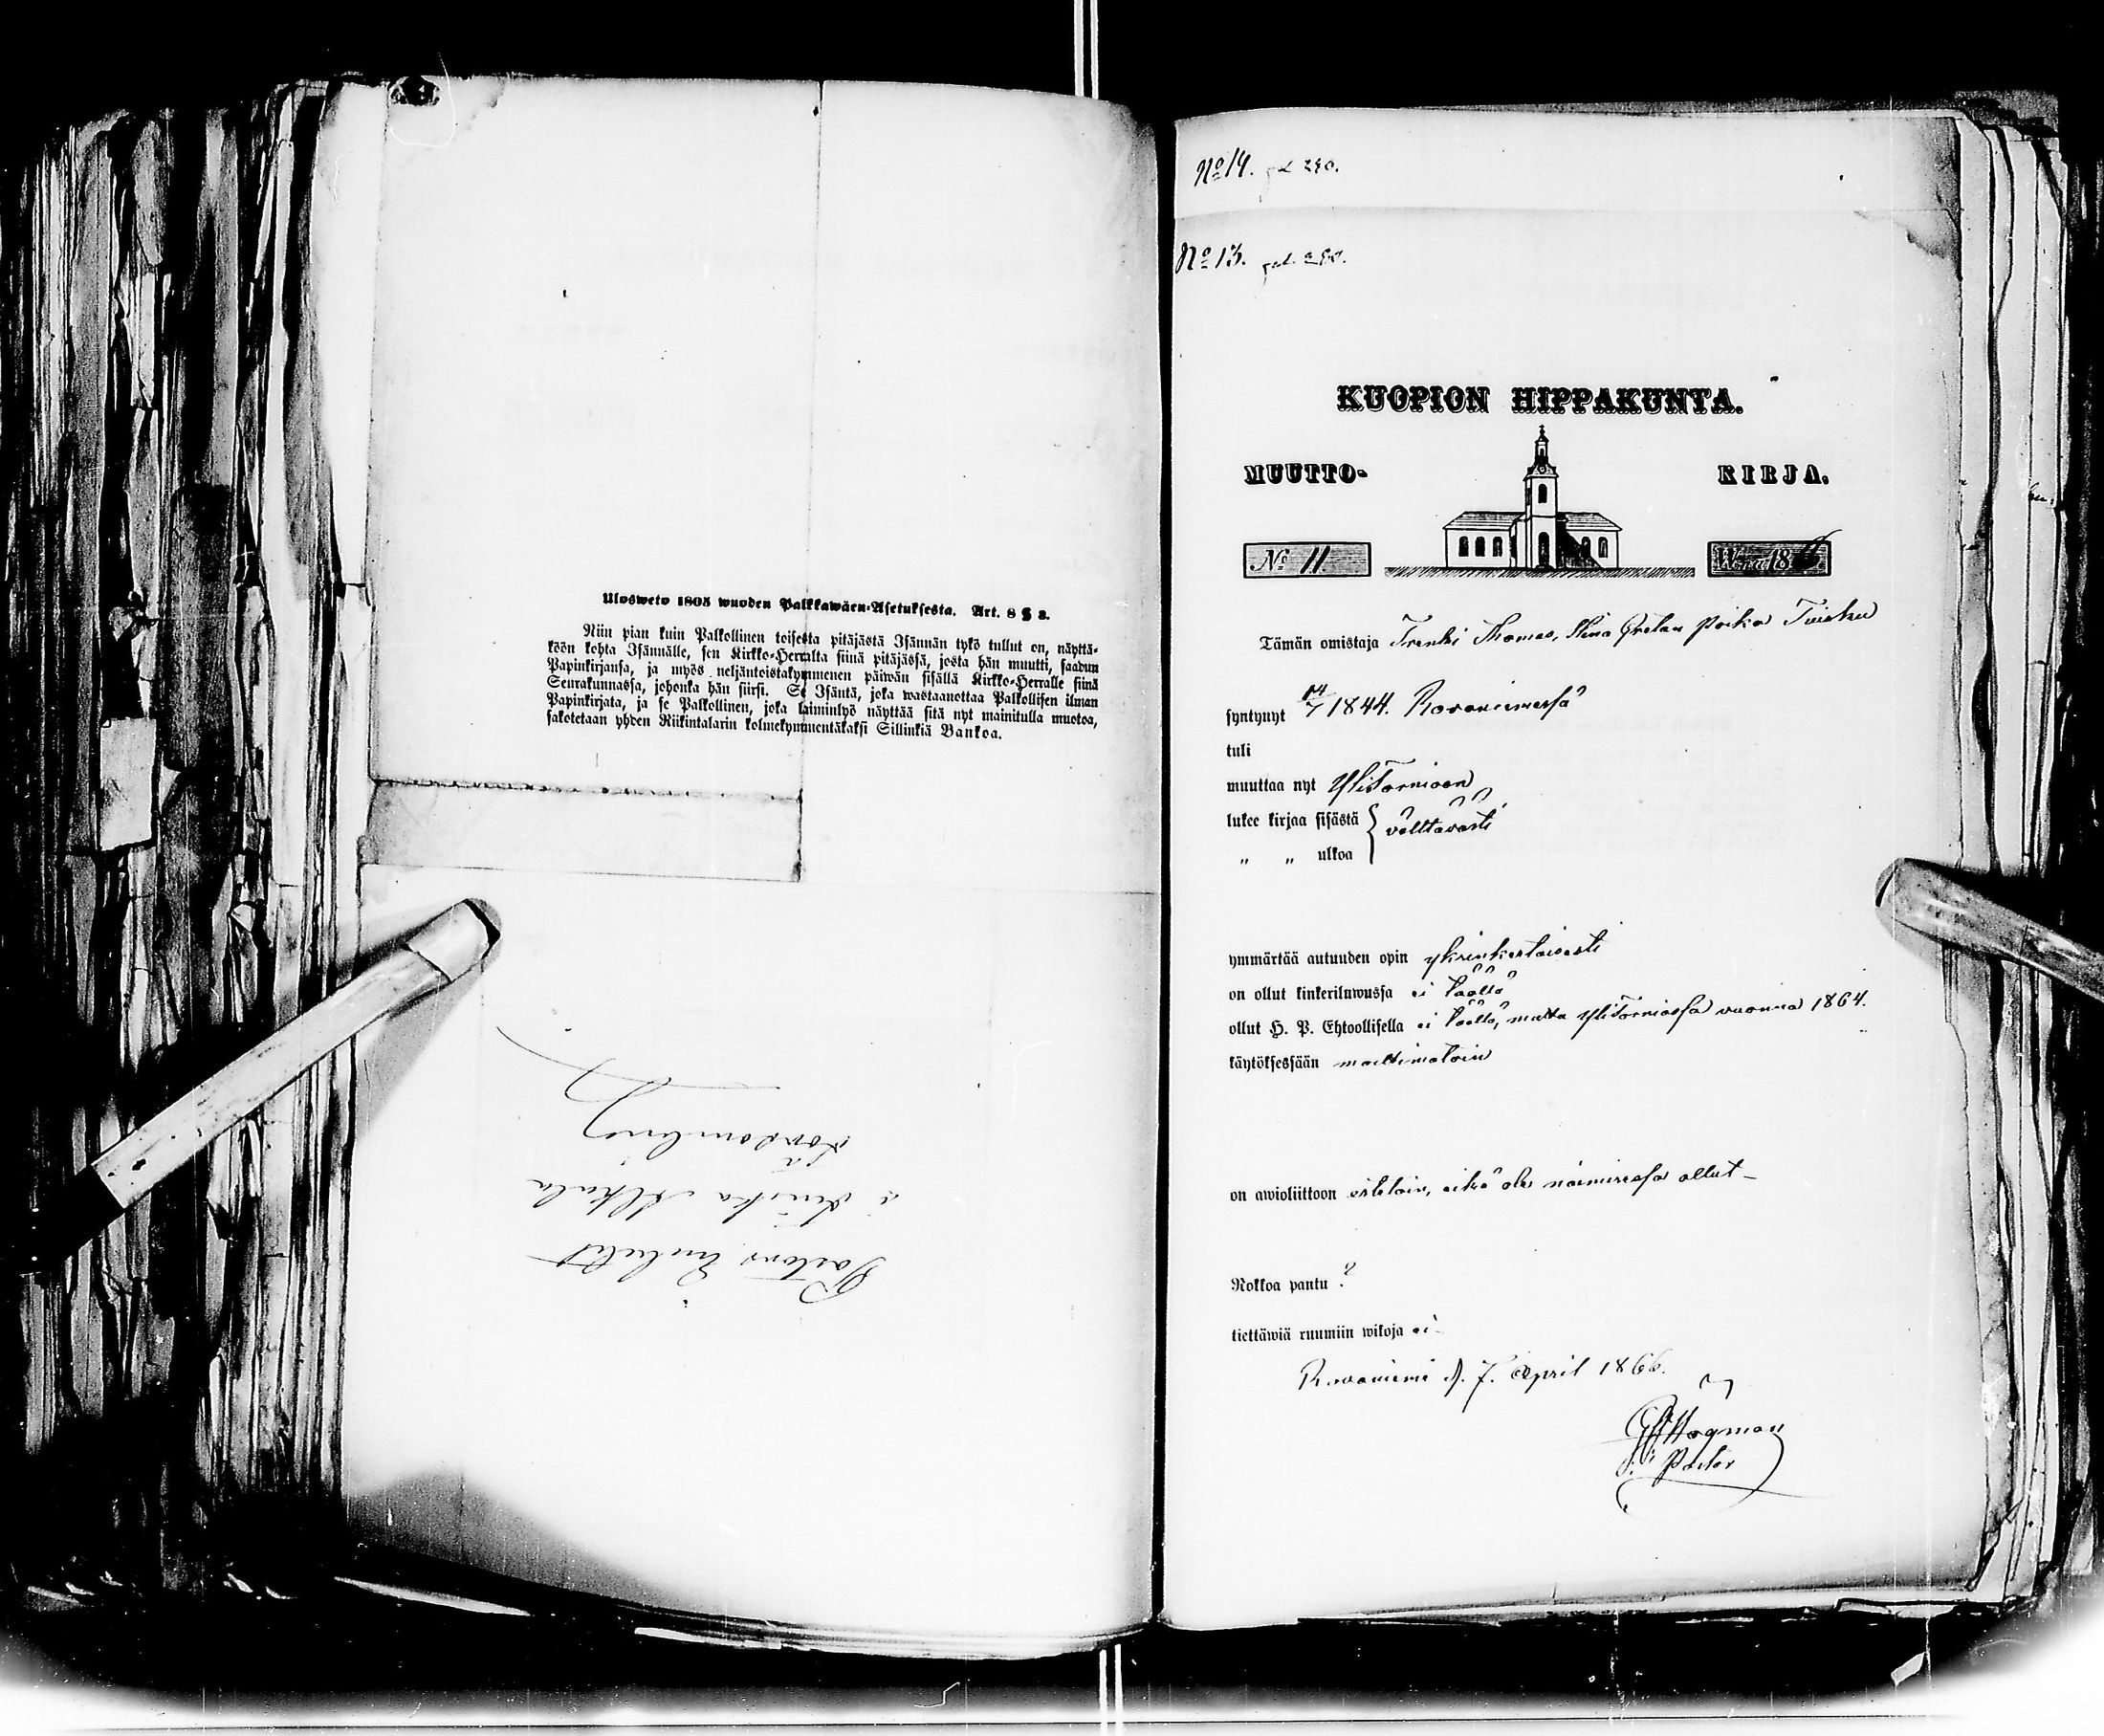 Ulosweto 1805 wuoden Palkkawäen-Asetuksesta. Art. 8 § 3.
Niin pian kuin Palkollinen toisesta pitäjästä Isännän tykö tullut on, näyttä-
köön kohta Isännälle, sen Kirkko-Herralta siinä pitäjässä, josta hän muutti, saadun
Papinkirjansa, ja myös neljäntoistakymmenen päiwän sisällä Kirkko-Herralle siinä
Seurakunnassa, johonka hän siirsi. Se Isäntä, joka wastaanottaa Palkollisen ilman
Papinkirjata, ja se Palkollinen, joka laiminlyö näyttää sitä nyt mainitulla muotoa,
sakotetaan yhden Riikintalarin kolmekymmentäkaksi Sillinkiä Bankoa.
No 14. 240.
No 13.
KUOPION HIPPAKUNTA.
MUUTTO- KIRJA.
No 11. Wuon. 18
Tämän omistaja Thomas, Stina Gretan poika Tuisku
syntynyt 14/7 1844. Rovaniemessä
tuli
muuttaa nyt YliTornioon
lukee kirjaa sisästä välttävästi
„ „ ulkoa
ymmärtää autuuden opin yksinkertaisesti
on ollut kinkeriluwussa ei täältä
ollut H. P. Ehtoollisella ei täällä, mutta YliTorniossa vuonna 1864.
käytöksessään moittimatoin
on awioliittoon esteetöin, eikä ole naimisessa ollut
Rokkoa pantu ?
tiettäwiä ruumiin wikoja ei
Rovaniemi d. 7. April 1866.
Hogman
Pastor